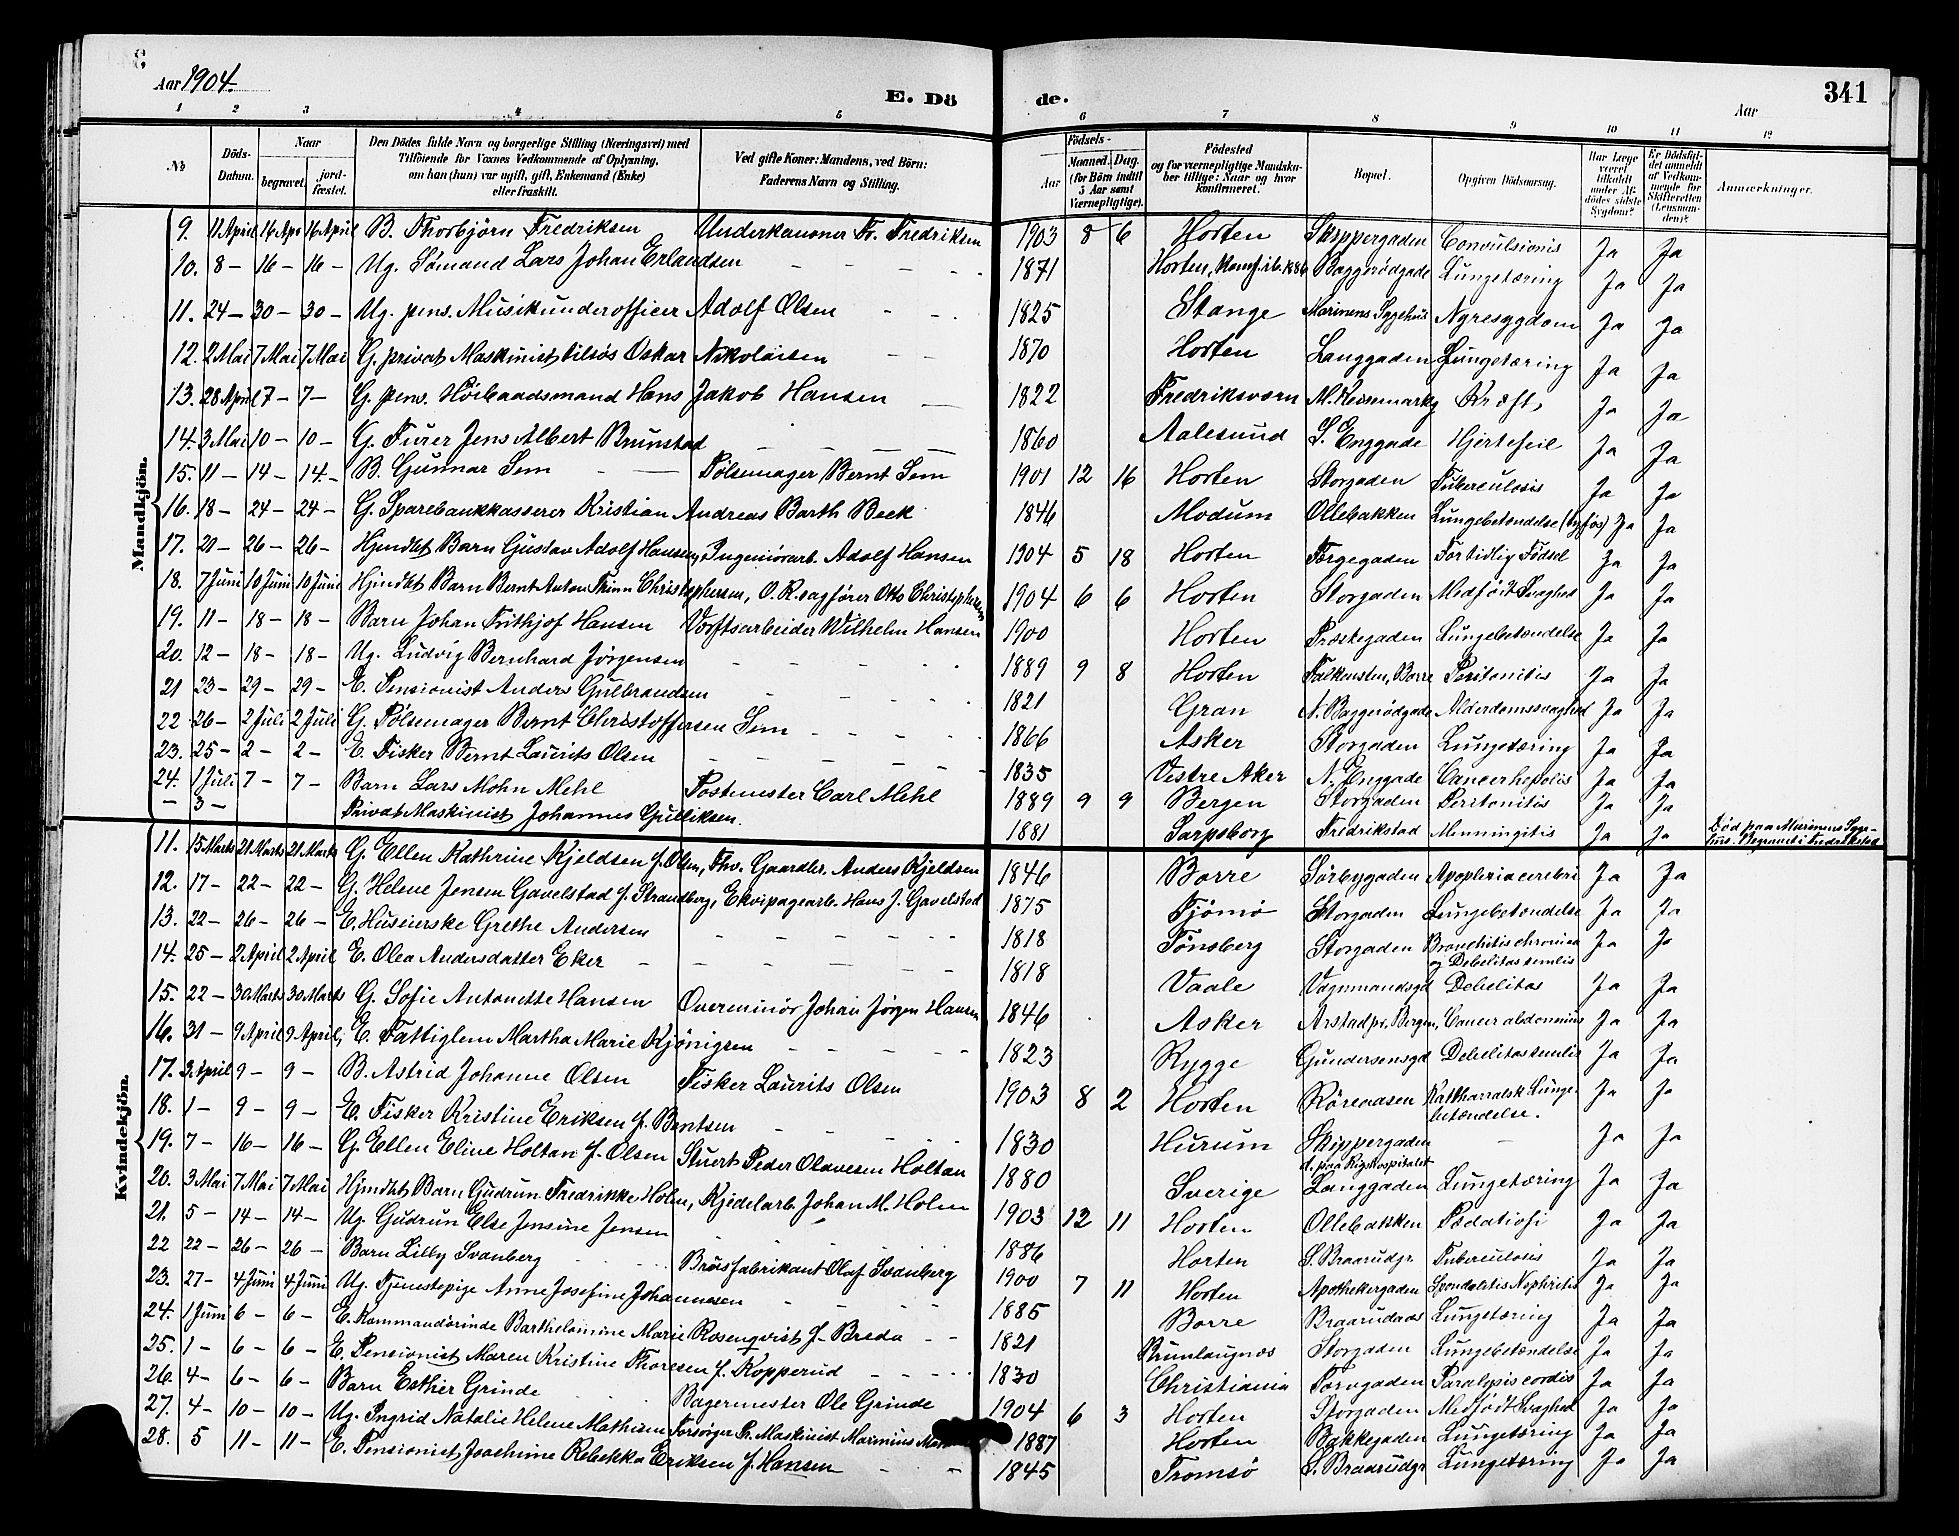 Aar 1904.
E. Dö de.
Aar
341
1 2 3 4 5 6 7 8 9 10 11 12
№
Döds-Datum.
Naar
begravet.
jord-fæstet.
Den Dödes fulde Navn og borgerlige Stilling (Næringsvei) med Tilföiende for Voxnes Vedkommende af Oplysning, om han (hun) var ugift, gift, Enkemand (Enke) eller fraskilt.
Ved gifte Koner: Mandens, ved Börn: Faderens Navn og Stilling.
Födsels-
Aar
Maaned. Dag.
(for Börn indtil 5 Aar samt Værnepligtige).
Födested og for værnepligtige Mandskaber tillige: Naar og hvor Konfirmeret.
Bopæl.
Opgiven Dödsaarsag.
Har Læge været tilkaldt under Afdödes sidste Sygdom?
Er Dödsfaldet anmeldt af Vedkommende for Skifteretten (Lensmanden)?
Anmærkninger.
Mandkjön.
9. 11 April 16 Apr 16 April B. Thorbjørn Fredriksen Underkanoner Fr. Fredriksen 1903 8 6 Horten Skippergaden Convulsionis Ja Ja
10. 8 – 16 – 16 – Ug. Sømand Lars Johan Erlandsen 1871 Horten, Konf. ib. 1886 Baggerødgade Lungetæring Ja Ja
11. 24 – 30 – 30 – Ug. pens. Musikunderofficer Adolf Olsen 1825 Stange Marinens Sygehus Nyresygdom Ja Ja
12. 2 Mai 7 Mai 7 Mai G. privat Maskinist tilsøs Oskar Nikolaisen 1870 Horten Langgaden Lungetæring Ja Ja
13. 28 April 7 – 7 – G. pens. Høibaadsmand Hans Jakob Hansen 1822 Fredriksværn Kræft Ja Ja
14. 3 Mai 10 – 10 – G. Furer Jens Albert Brunstad 1860 Aalesund S. Enggade Hjertefeil Ja Ja
15. 11 – 14 – 14. – B. Gunnar Sem Pølsemager Bernt Sem 1901 12 16 Horten Storgaden Tuberculosis Ja Ja
16. 18 – 24 – 24 – G. Sparebankkasserer Kristian Andreas Barth Beck 1846 Modum Ollebakken Lungebetændelse Ja Ja
17. 21 – 26 – 26 – Hjmdbt Barn Gustav Adolf Hansen, Ingeniørarb. Adolf Hansen 1904 5 18 Horten Torgegaden For tidlig Fødsel Ja Ja
18. 7 Juni 10 Juni 10 Juni Hjmdbt Barn Bernt Anton Christophersen, O. R. sagfører Christophersen 1904 6 6 Horten Storgaden Medfødt Svaghed Ja Ja
19. 11 – 18 – 18 – Barn Johan Frithjof Hansen Værftsarbeider Wilhelm Hansen 1900 Horten Præstegaden Lungebetændelse Ja Ja
20. 12 – 18 – 18 – Ug. Ludvig Bernhard Jørgensen 1889 9 8 Horten Falkensten, Borre Peritonitis Ja Ja
21 23 – 29 – 29 – E. Pensionist Anders Gulbrandsen 1821 Gran N. Baggerødgade Alderdomssvaghed Ja Ja
22 26 – 2 Juli 2 Juli G. Pølsemager Bernt Christoffersen Sem 1866 Asker Storgaden Lungetæring Ja Ja
23. 25 – 2 – 2 – E. Fisker Bernt Laurits Olsen 1835 Vestre Aker N. Enggade Cancer hepatis Ja Ja
24. 1 Juli 7 – 7 – Barn Lars Mohn Mehl Postmester Carl Mehl 1889 9 9 Bergen Storgaden Peritonitis Ja Ja
– 3 – Privat Maskinist Johannes Gulliksen. 1881 Sarpsborg Fredrikstad Menningitis Ja Ja Død paa Marinens Sygehus. Begravet i Fredrikstad
Kvindekjön.
11. 15 Marts 21 Marts 21 Marts G. Ellen Kathrine Kjeldsen f. Olsen, Fhv. Gaardbr. Anders Kjeldsen 1846 Borre Sørbygaden Apoplexia cerebri Ja Ja
12. 17 – 22 – 22 – G. Helene Jensen Gavelstad f. Strandberg, Ekvipagearb. Hans J. Gavelstad 1875 Tjømø Storgaden Lungebetændelse Ja Ja
13. 22 – 26 – 26 – E. Huseierske Grethe Andersen 1818 Tønsberg Storgaden Bronchitis chronica og Debilitas senilis Ja Ja
14. 25 – 2 April 2 April E. Olea Andersdatter Eker 1818 Vaale Vognmandsgd Debilitas Ja Ja
15. 22 – 30 Marts 30 Marts G. Sofie Antonette Hansen Overminør Johan Jørgen Hansen 1846 Asker Arstad pr. Bergen, Cancer abdominis Ja Ja
16. 31 – 9 April 9 April, E. Fattiglem Martha Marie Kjønigsen 1823 Rygge Gundersensgd Debilitas senilis Ja Ja
17. 3 April 9 – 9 – B. Astrid Johanne Olsen Fisker Laurits Olsen 1903 8 2 Horten Røreaasen Katharralsk Lungebetændelse. Ja Ja
18. 1 – 9 – 9 – E. Fisker Kristine Eriksen f. Bentsen 1830 Hurum Skippergaden – Ja Ja
19. 7 – 16 – 16 – G. Ellen Eline Holtan f. Olsen Stuert Peder Olavesen Holtan 1880 Sverige d. paa Rigshospitalet Langgaden Lungetæring Ja Ja
20. 3 Mai 7 Mai 7 Mai Hjmdbt Barn Gudrun Fredrikke Holm, Kjedelarb. Johan M. Holm 1903 12 11 Horten Ollebakken Pædatrofi Ja Ja
21. 5 – 14 – 14 – Ug. Gudrun Else Jensine Jensen 1886 Horten S. Braarudgr. Tuberculosis Ja Ja
22 22 – 26 – 26 – Barn Lilly Svanberg Brusfabrikant Olaf Svanberg 1900 7 11 Horten Apothekergaden Spondelitis Nephritis Ja Ja
23. 27 – 4 Juni 4 Juni Ug. Tjenestepige Anne Josefine Johannesen 1885 Borre Braarudaas Lungetæring Ja Ja
24. 1 Juni 6 – 6 – E. Kommandørinde Bartholomine Marie Rosenqvist f. Breda 1821 Brunlaugnæs Storgaden Lungebetændelse Ja Ja
25. 1 – 6 – 6 – E. Pensionist Maren Kristine Thoresen f. Kopperud 1830 Christiania Torvgaden Paralysis cordis Ja Ja
26. 4 – 6 – 6 – Barn Esther Grinde Bagermester Ole Grinde 1904 6 3 Horten Storgaden Medfødt Svaghed Ja Ja
27. 4 – 10 – 10 – Ug. Ingrid Natalie Helene Mathisen Forsørger Pr. Maskinist Marinius 1887 Horten Bakkegaden Lungetæring Ja Ja
28. 5 11 – 11 – E. Pensionist Joachime Rebekka Eriksen f. Hansen 1845 Tromsø S. Braarudgr Lungetæring Ja Ja